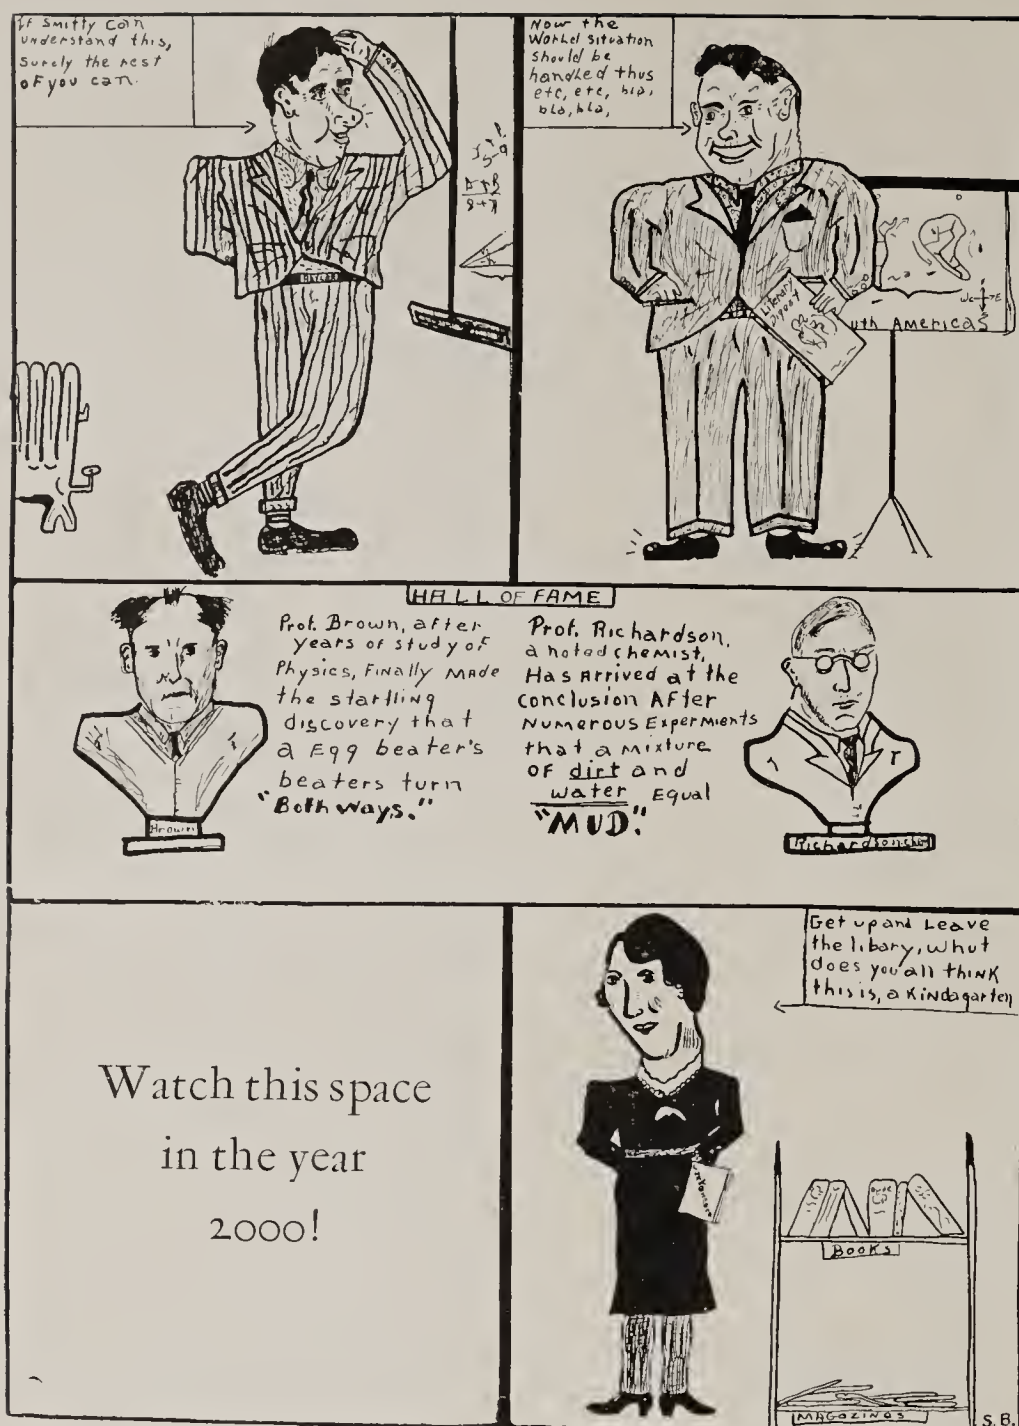 If Smitty Can
understand this,
Surely the rest
of you can.
Now the
World situation
should be
handled thus
etc, etc, bla,
bla, bla,
Literary
Digest
uth Americas
HALL OF FAME
Prof. Brown, after
years of study of
Physics, Finally Made
the startling
discovery that
a Egg beater's
beaters turn
"Both Ways."
Brown
Prof. Richardson,
a noted chemist,
Has Arrived at the
Conclusion After
Numerous Expermients
that a Mixture
OF dirt and
water Equal
"MUD."
Richardson
Get up and Leave
the libary, Whut
does you all THINK
this is, a Kindagarten
Watch this space
in the year
2000!
BOOKS
MAGOZINOS
S.B.